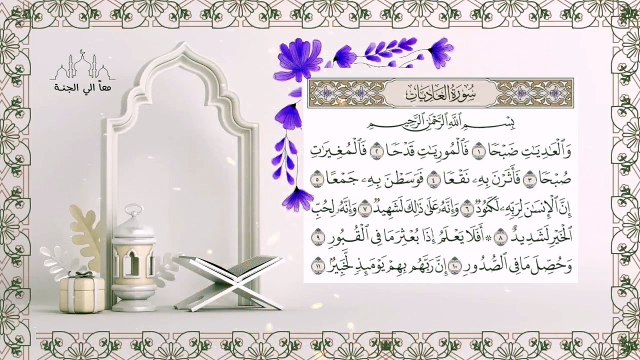 معاً الي الجنة
سُورَةُ العَادِيَاتِ
بِسْمِ اللَّهِ الرَّحْمَٰنِ الرَّحِيمِ
وَالْعَادِيَاتِ ضَبْحًا ١ فَالْمُورِيَاتِ قَدْحًا ٢ فَالْمُغِيرَاتِ
صُبْحًا ٣ فَأَثَرْنَ بِهِ نَقْعًا ٤ فَوَسَطْنَ بِهِ جَمْعًا ٥
إِنَّ الْإِنسَانَ لِرَبِّهِ لَكَنُودٌ ٦ وَإِنَّهُ عَلَىٰ ذَٰلِكَ لَشَهِيدٌ ٧ وَإِنَّهُ لِحُبِّ
الْخَيْرِ لَشَدِيدٌ ٨ ۞ أَفَلَا يَعْلَمُ إِذَا بُعْثِرَ مَا فِي الْقُبُورِ ٩
وَحُصِّلَ مَا فِي الصُّدُورِ ١٠ إِنَّ رَبَّهُم بِهِمْ يَوْمَئِذٍ لَّخَبِيرٌ ١١